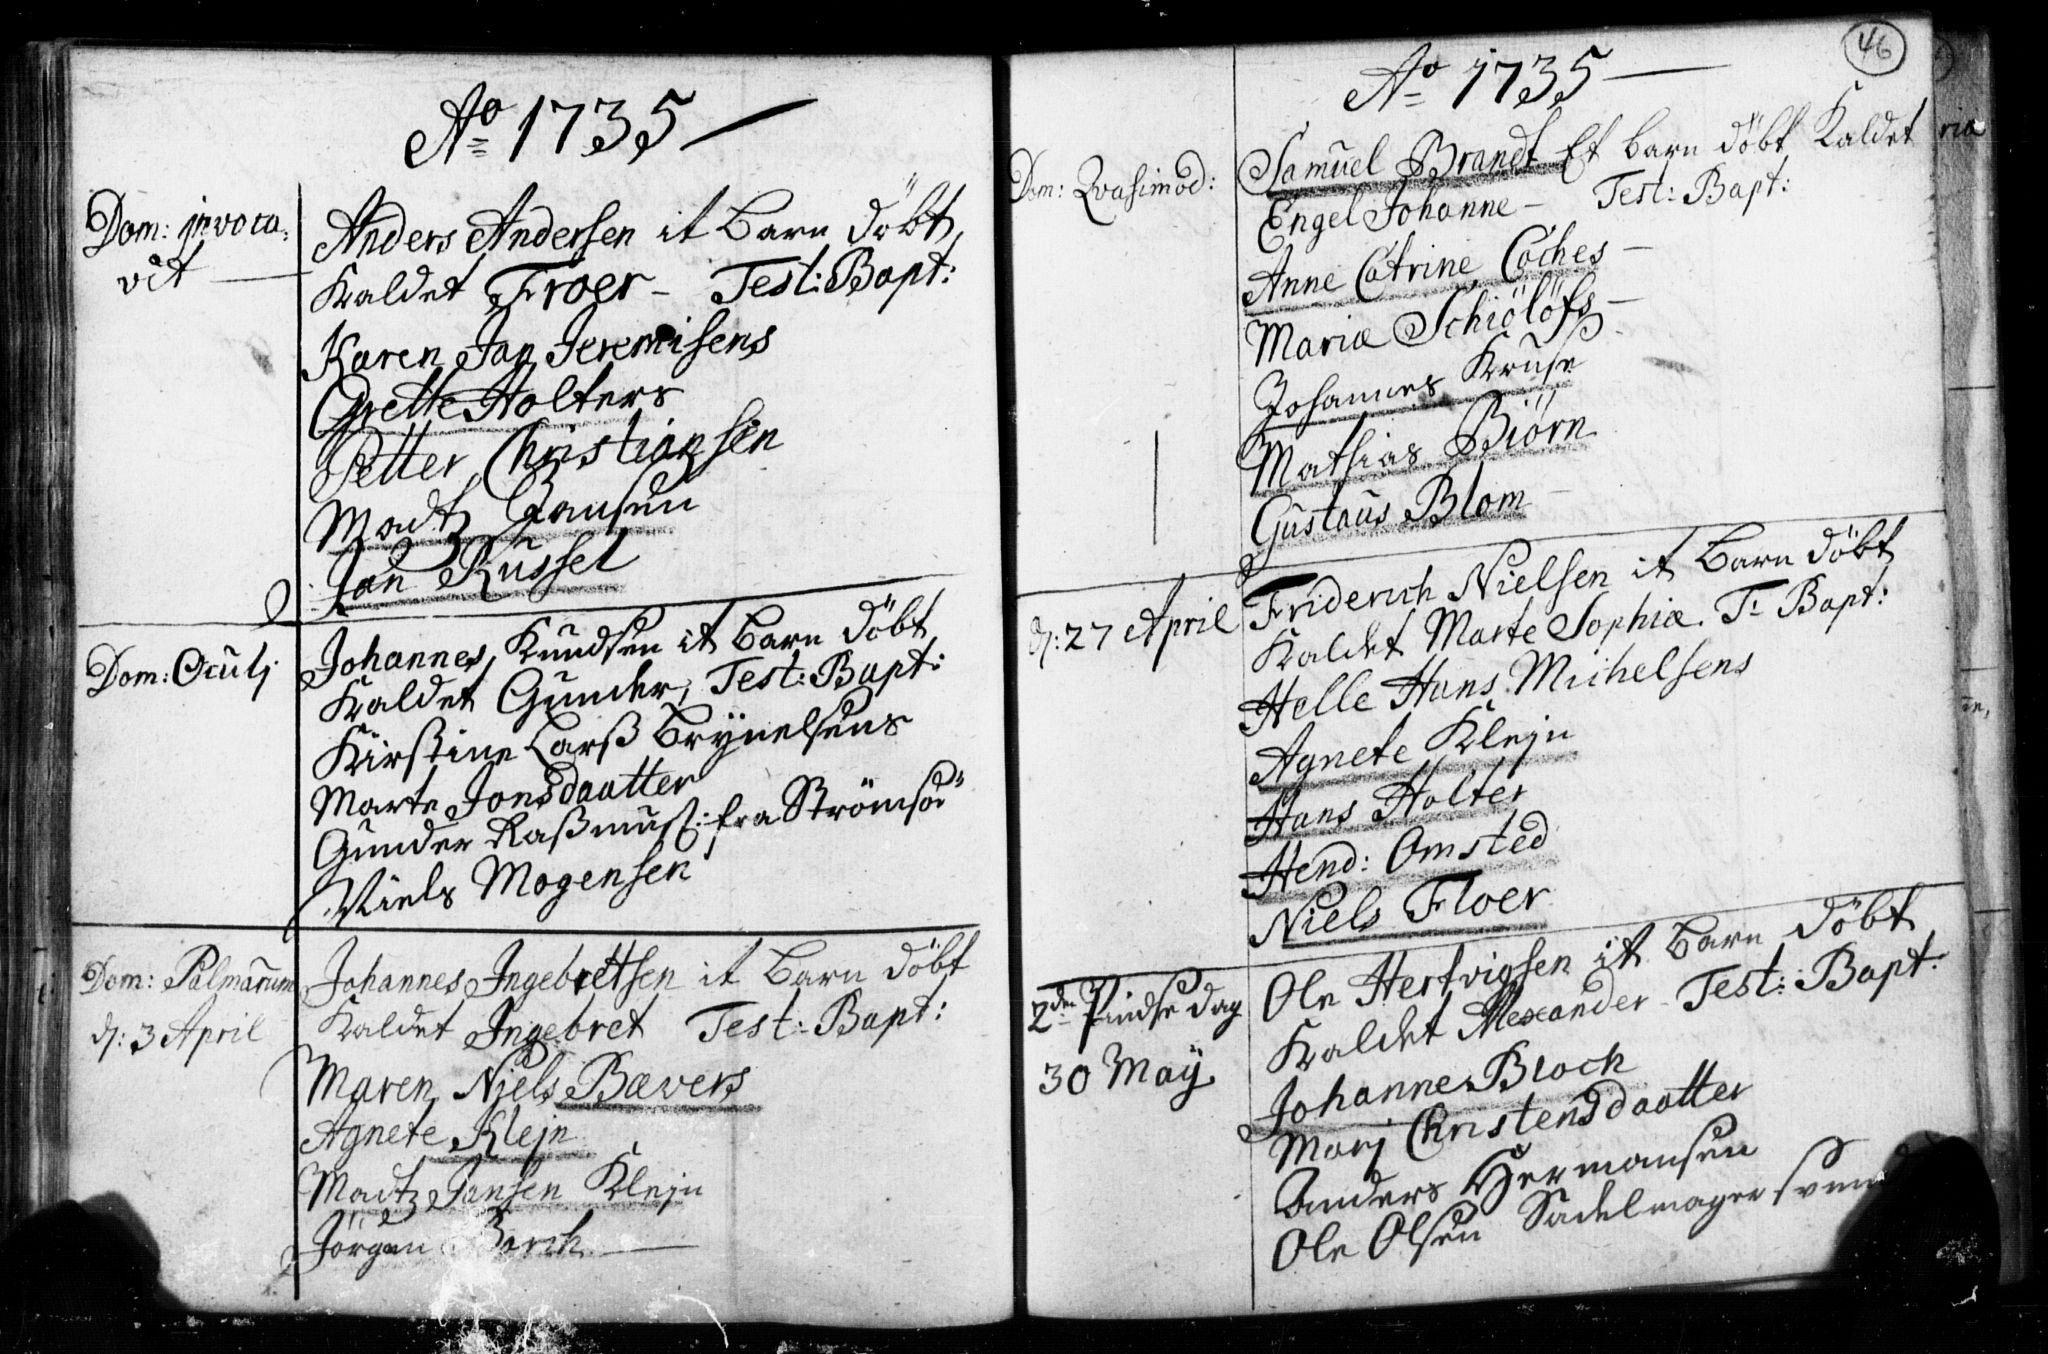 Ao 1735
Dom: invoca-
vit
Anders Andersen it barn döbt,
Kaldet Froer - Test: Bapt:
Karen Jan Jeremisens
Grette Holters
Petter Christiansen
Madtz Hansen
Jan Russel
Dom: Oculj
Johannes Knudsen it barn döbt
Kaldet Gunder, Test: Bapt:
Kirstine Larß Brynelsens
Marte Jonsdaatter
Gunder Raßmuß: fra Strömsöe
Niels Mogensen
Dom: Palmarum
d: 3 April
Johannes Ingebretsen it barn döbt
Kaldet Ingebret Test: Bapt:
Maren Njels Bævers
Agnete Klejn
Madtz Jansen Klejn
Jörgen Borch
46
Ao 1735
Dom: Qvasimod:
Samuel Brandt Et barn döbt Kaldet
Engel Johanne - Test: Bapt:
Anne Catrine Coches -
Mariæ Schiölöfs -
Johannes Kruse
Mathias Biörn
Gustaus Blom -
d: 27 April
Friderich Nielsen it barn döbt
Kaldet Marte Sophiæ. T: Bapt:
Helle Hans Michelsens
Agnete Klejn
Hans Holter
Hend: Omsted
Niels Floer
2den Pindse dag
30 Maÿ
Ole Hertvigsen it barn döbt
Kaldet Alexander - Test: Bapt:
Johanne Bloch
Marj Christensdaatter
Anders Hermansen
Ole Olsen Sadelmager